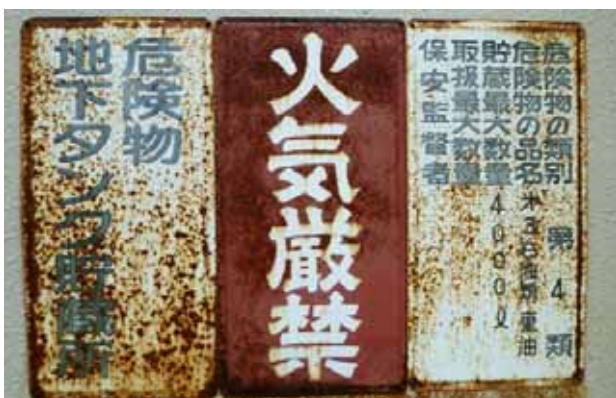 危険物の類別 第4類
危険物の品名 第3石油類重油
貯蔵最大数量 4000ℓ
取扱最大数量
保安監督者
火気厳禁
危険物
地下タンク貯蔵所